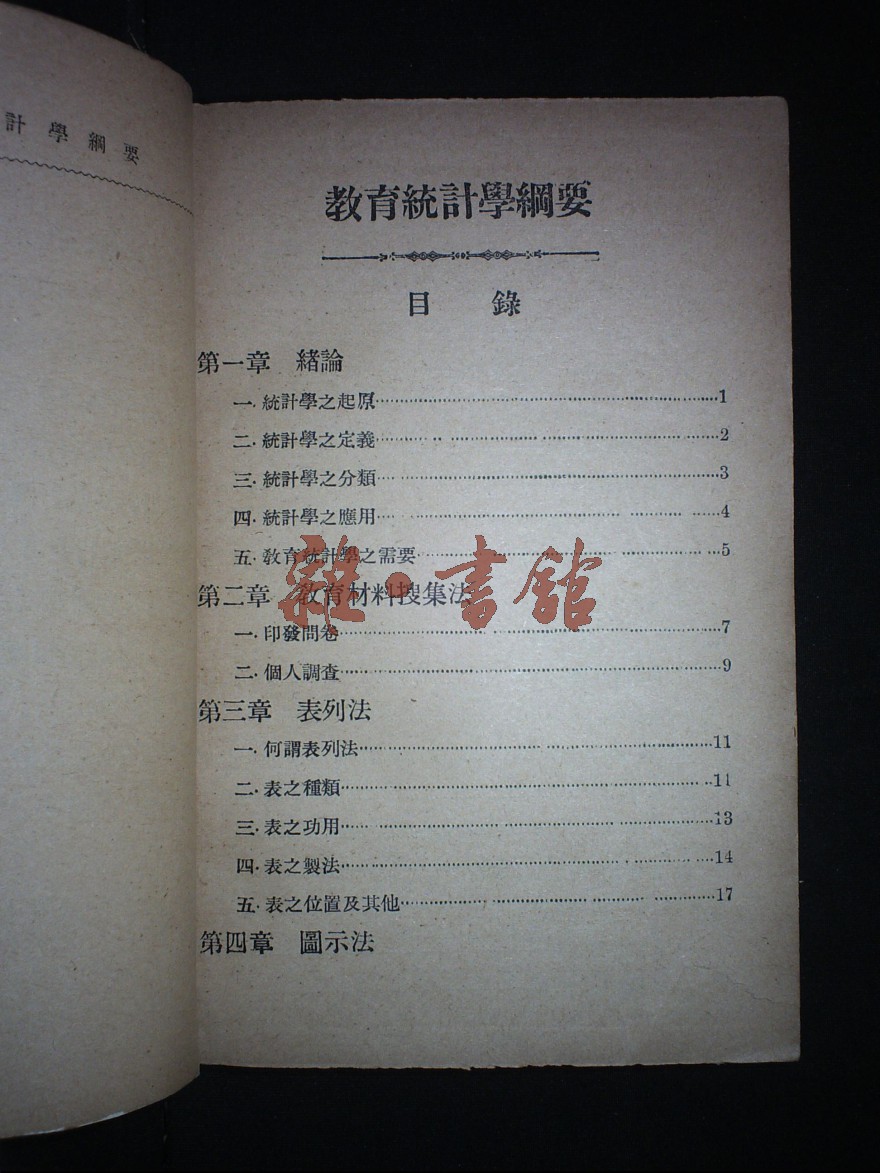 計學綱要
教育統計學綱要
目 錄
第一章 緒論
一.統計學之起原 1
二.統計學之定義 2
三.統計學之分類 3
四.統計學之應用 4
五.教育統計學之需要 5
第二章 教育材料搜集法
一.印發問卷 7
二.個人調查 9
第三章 表列法
一.何謂表列法 11
二.表之種類 11
三.表之功用 13
四.表之製法 14
五.表之位置及其他 17
第四章 圖示法
雜·書館